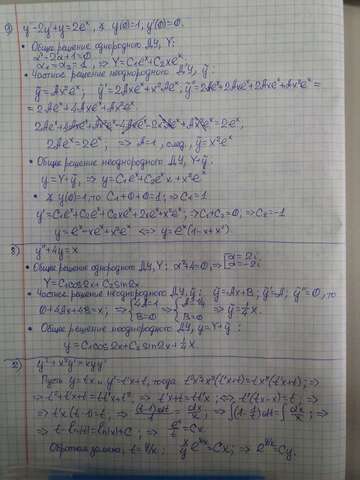 9) y''-2y'+y=2eˣ, з. y(0)=1, y'(0)=0.
• Общее решение однородного ДУ, Y:
α²-2α+1=0
α₁=α₂=1 ; ⇒ Y=C₁eˣ+C₂xeˣ
• Частное решение неоднородного ДУ, ỹ:
ỹ=Ax²eˣ; ỹ'=2Axeˣ+x²Aeˣ; ỹ''=2Aeˣ+2Axeˣ+2Axeˣ+Ax²eˣ=
=2Aeˣ+4Axeˣ+Ax²eˣ
2Aeˣ+4Axeˣ+Ax²eˣ-4Axeˣ-2x²Aeˣ+Ax²eˣ=2eˣ,
2Aeˣ=2eˣ; ⇒ A=1, след, ỹ=x²eˣ
• Общее решение неоднородного ДУ, Y+ỹ:
y=Y+ỹ, ⇒ y=C₁eˣ+C₂eˣx+x²eˣ
• з. y(0)=1, то C₁+0+0=1; ⇒ C₁=1
y'=C₁eˣ+C₂eˣ+C₂xeˣ+2xeˣ+x²eˣ; ⇒ C₁+C₂=0; ⇒ C₂=-1
y=eˣ-xeˣ+x²eˣ ⇔ y=eˣ(1-x+x²)
8) y''+4y=x
• Общее решение однородного ДУ, Y: α²+4=0, ⇒ [α=2i α=-2i
Y=C₁cos2x+C₂sin2x
• Частное решение неоднородного ДУ, ỹ: ỹ=Ax+B; ỹ'=A; ỹ''=0, то
0+4Ax+4B=x; ⇒ {4A=1 B=0 ⇒ {A=¼ B=0 ⇒ ỹ=¼x.
• Общее решение неоднородного ДУ, y=Y+ỹ:
y=C₁cos2x+C₂sin2x+¼x
2) y²+x²y'=xyy'
Пусть y=tx и y'=t'x+t, тогда t²x²+x²(t'x+t)=tx²(t'x+t); ⇒
⇒ t²+t'x+t=tt'x+t²; ⇒ t'x+t=tt'x; ⇔ t'(tx-x)=t; ⇒
⇒ t'x(t-1)=t; ⇒ (t-1)dt/t=dx/x; ⇒ ∫(1-1/t)dt=∫dx/x; ⇒
⇒ t-ln|t|=ln|x|+C; ⇒ eᵗ/t=Cx
Обратная замена: t=y/x; x/y e^(y/x)=Cx; ⇒ e^(y/x)=Cy.